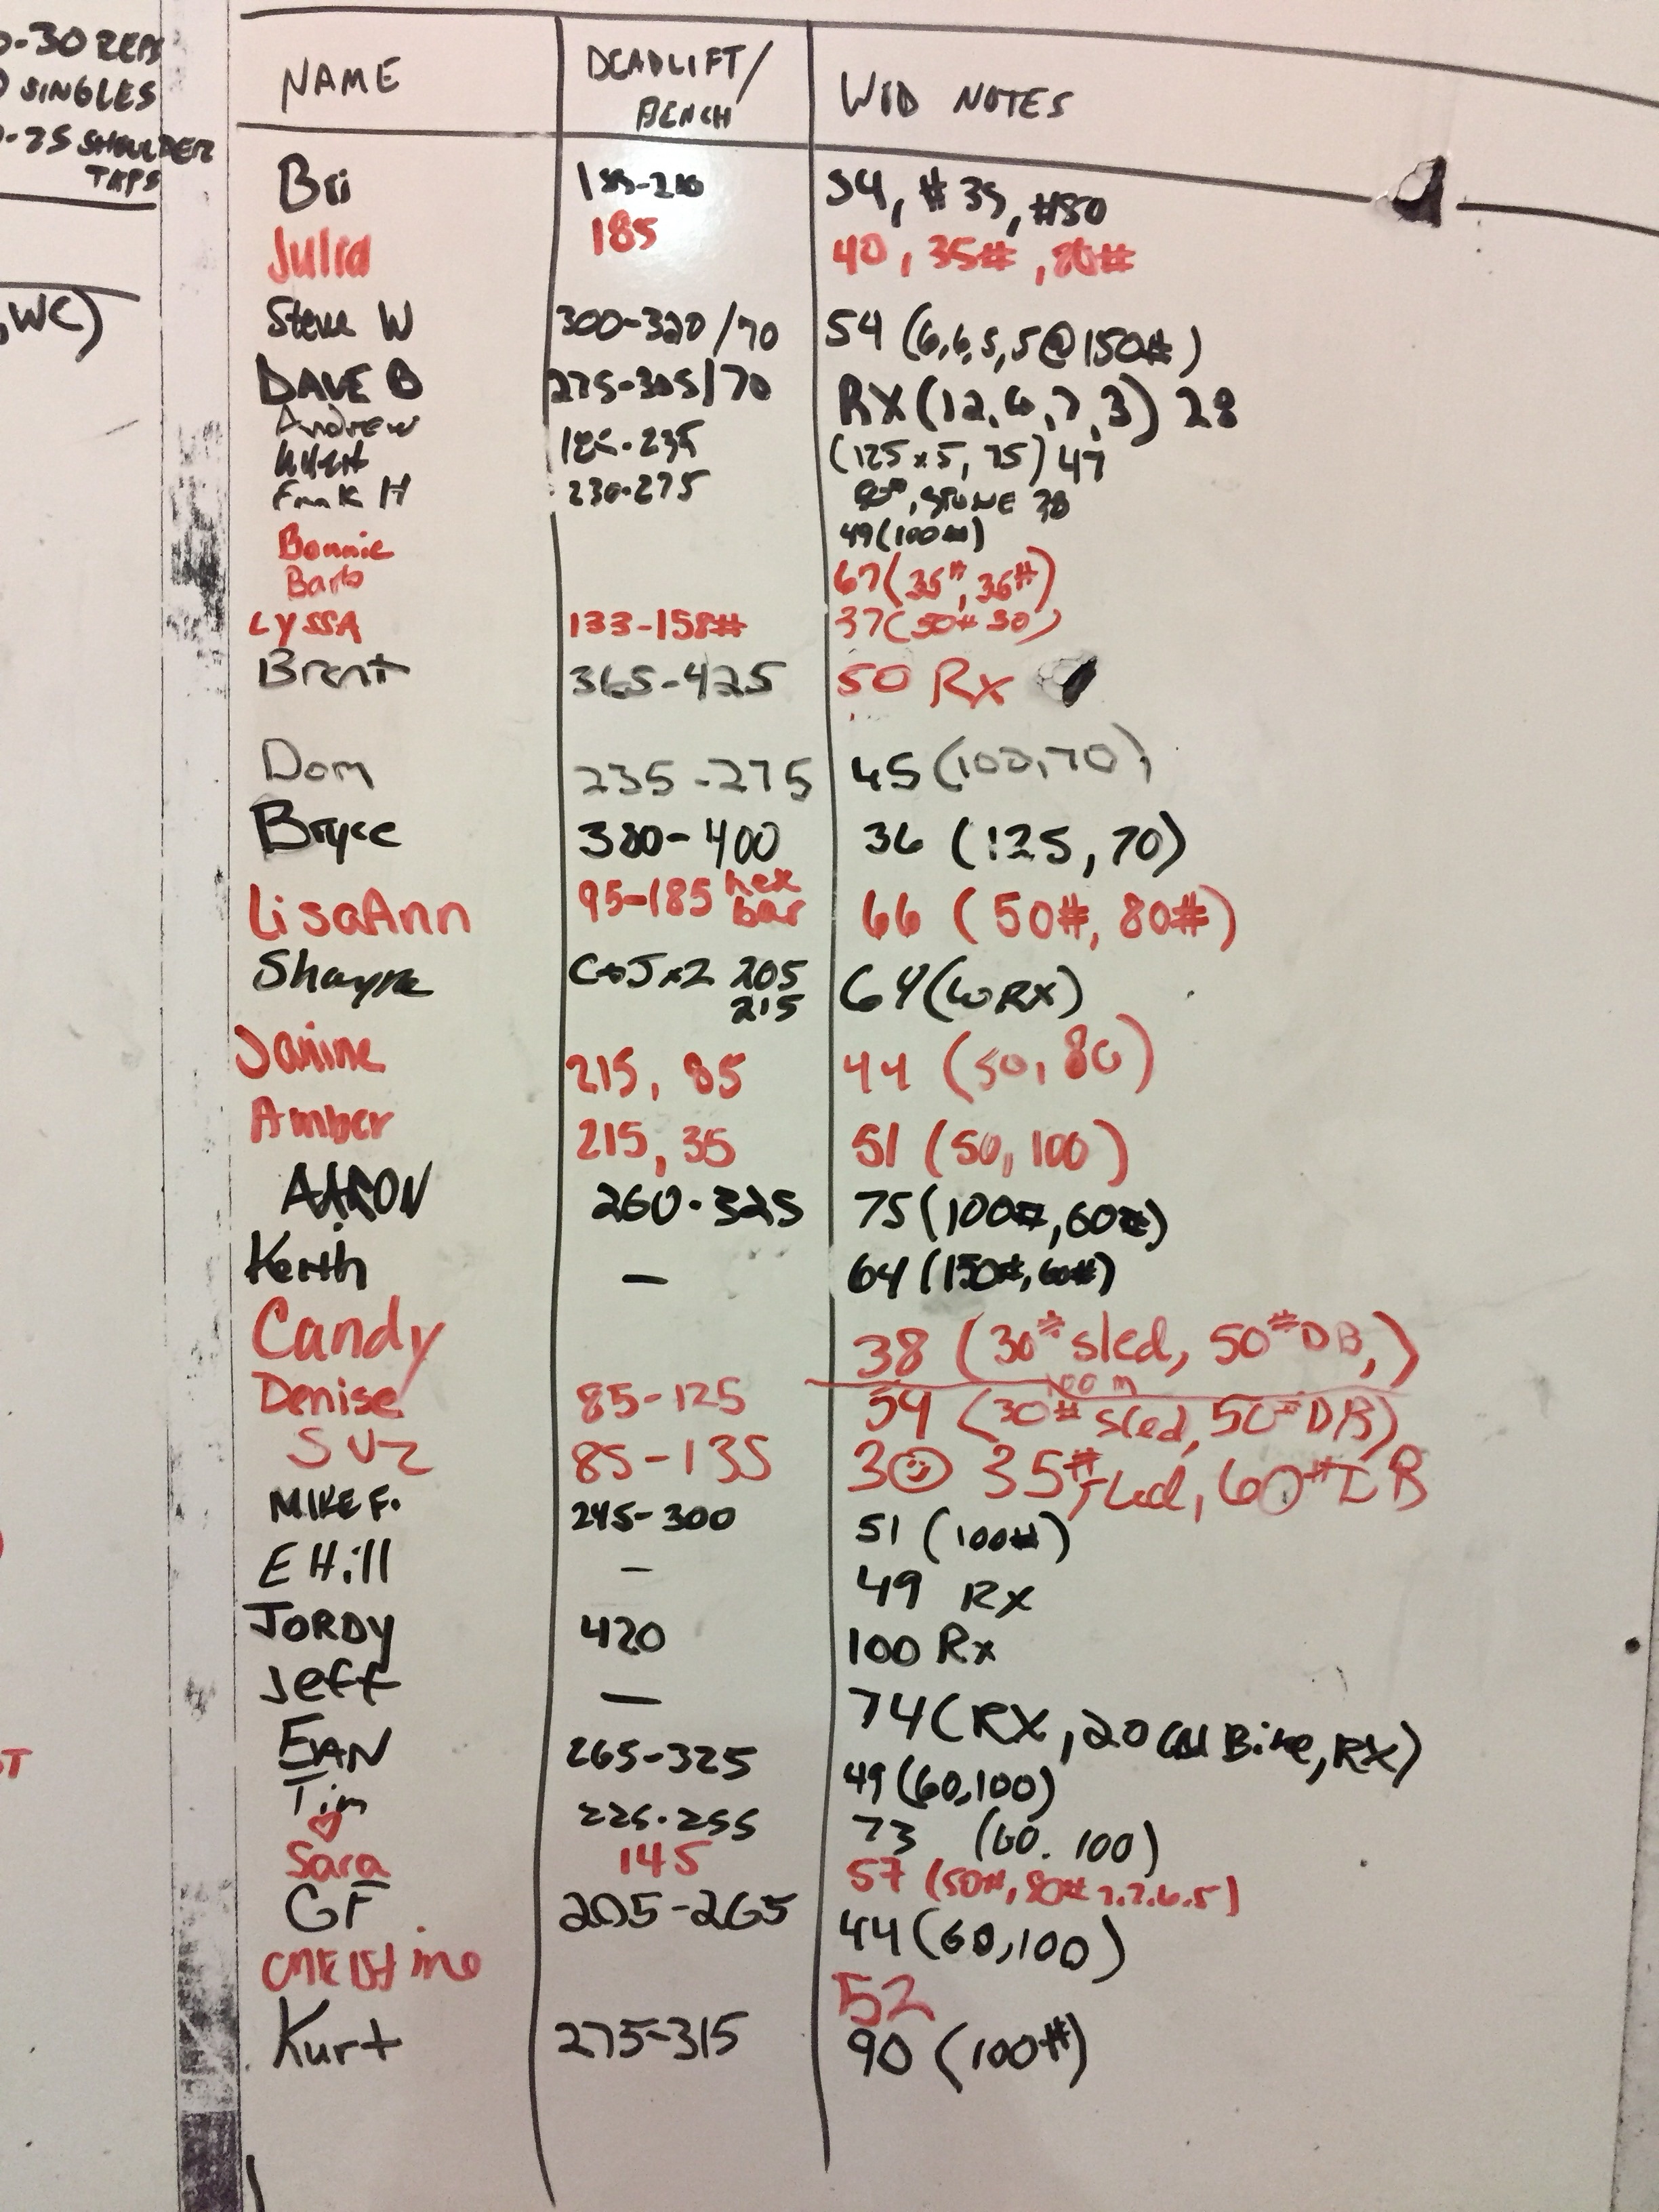 -30 REPS
SINGLES
-25 SHOULDER
TAPS
WC)
NAME DEADLIFT/ BENCH WOD NOTES
Bri 185-210 54, #35, #80
Julia 185 40, 35#, 80#
Steve W 300-320/70 54 (6,6,5,5@150#)
DAVE B 275-305/70 RX (12,6,7,3) 28
Andrew 235 (125x5, 75) 47
Frank H 230-275 STONE 38
49 (100m)
Bonnie
Barb 67 (35#, 36#)
LYSSA 133-158# 37 (50# 30)
Brent 365-425 50 Rx
Dom 235-275 45 (100,70)
Bryce 380-400 36 (125, 70)
LisaAnn 95-185 hex bar 66 (50#, 80#)
Shayne C+Jx2 205 64 (60 RX)
215
Janine 215, 85 44 (50, 80)
Amber 215, 35 51 (50, 100)
AARON 260-325 75 (100#, 60#)
Keith — 64 (150#, 60#)
Candy 38 (30# sled, 50# DB,)
100 m
Denise 85-125 54 (30# sled, 50# DB)
SUZ 85-135 30 35# sled, 60# DB
MIKE F. 245-300 51 (100#)
E Hill — 49 Rx
JORDY 420 100 Rx
Jeff — 74 (RX, 20 Cal Bike, RX)
EVAN 265-325 49 (60,100)
Tim 225-255 73 (60. 100)
Sara 145 57 (50#, 80# 7.7.6.5)
GF 205-265 44 (60,100)
CHRISTine 52
Kurt 275-315 90 (100#)